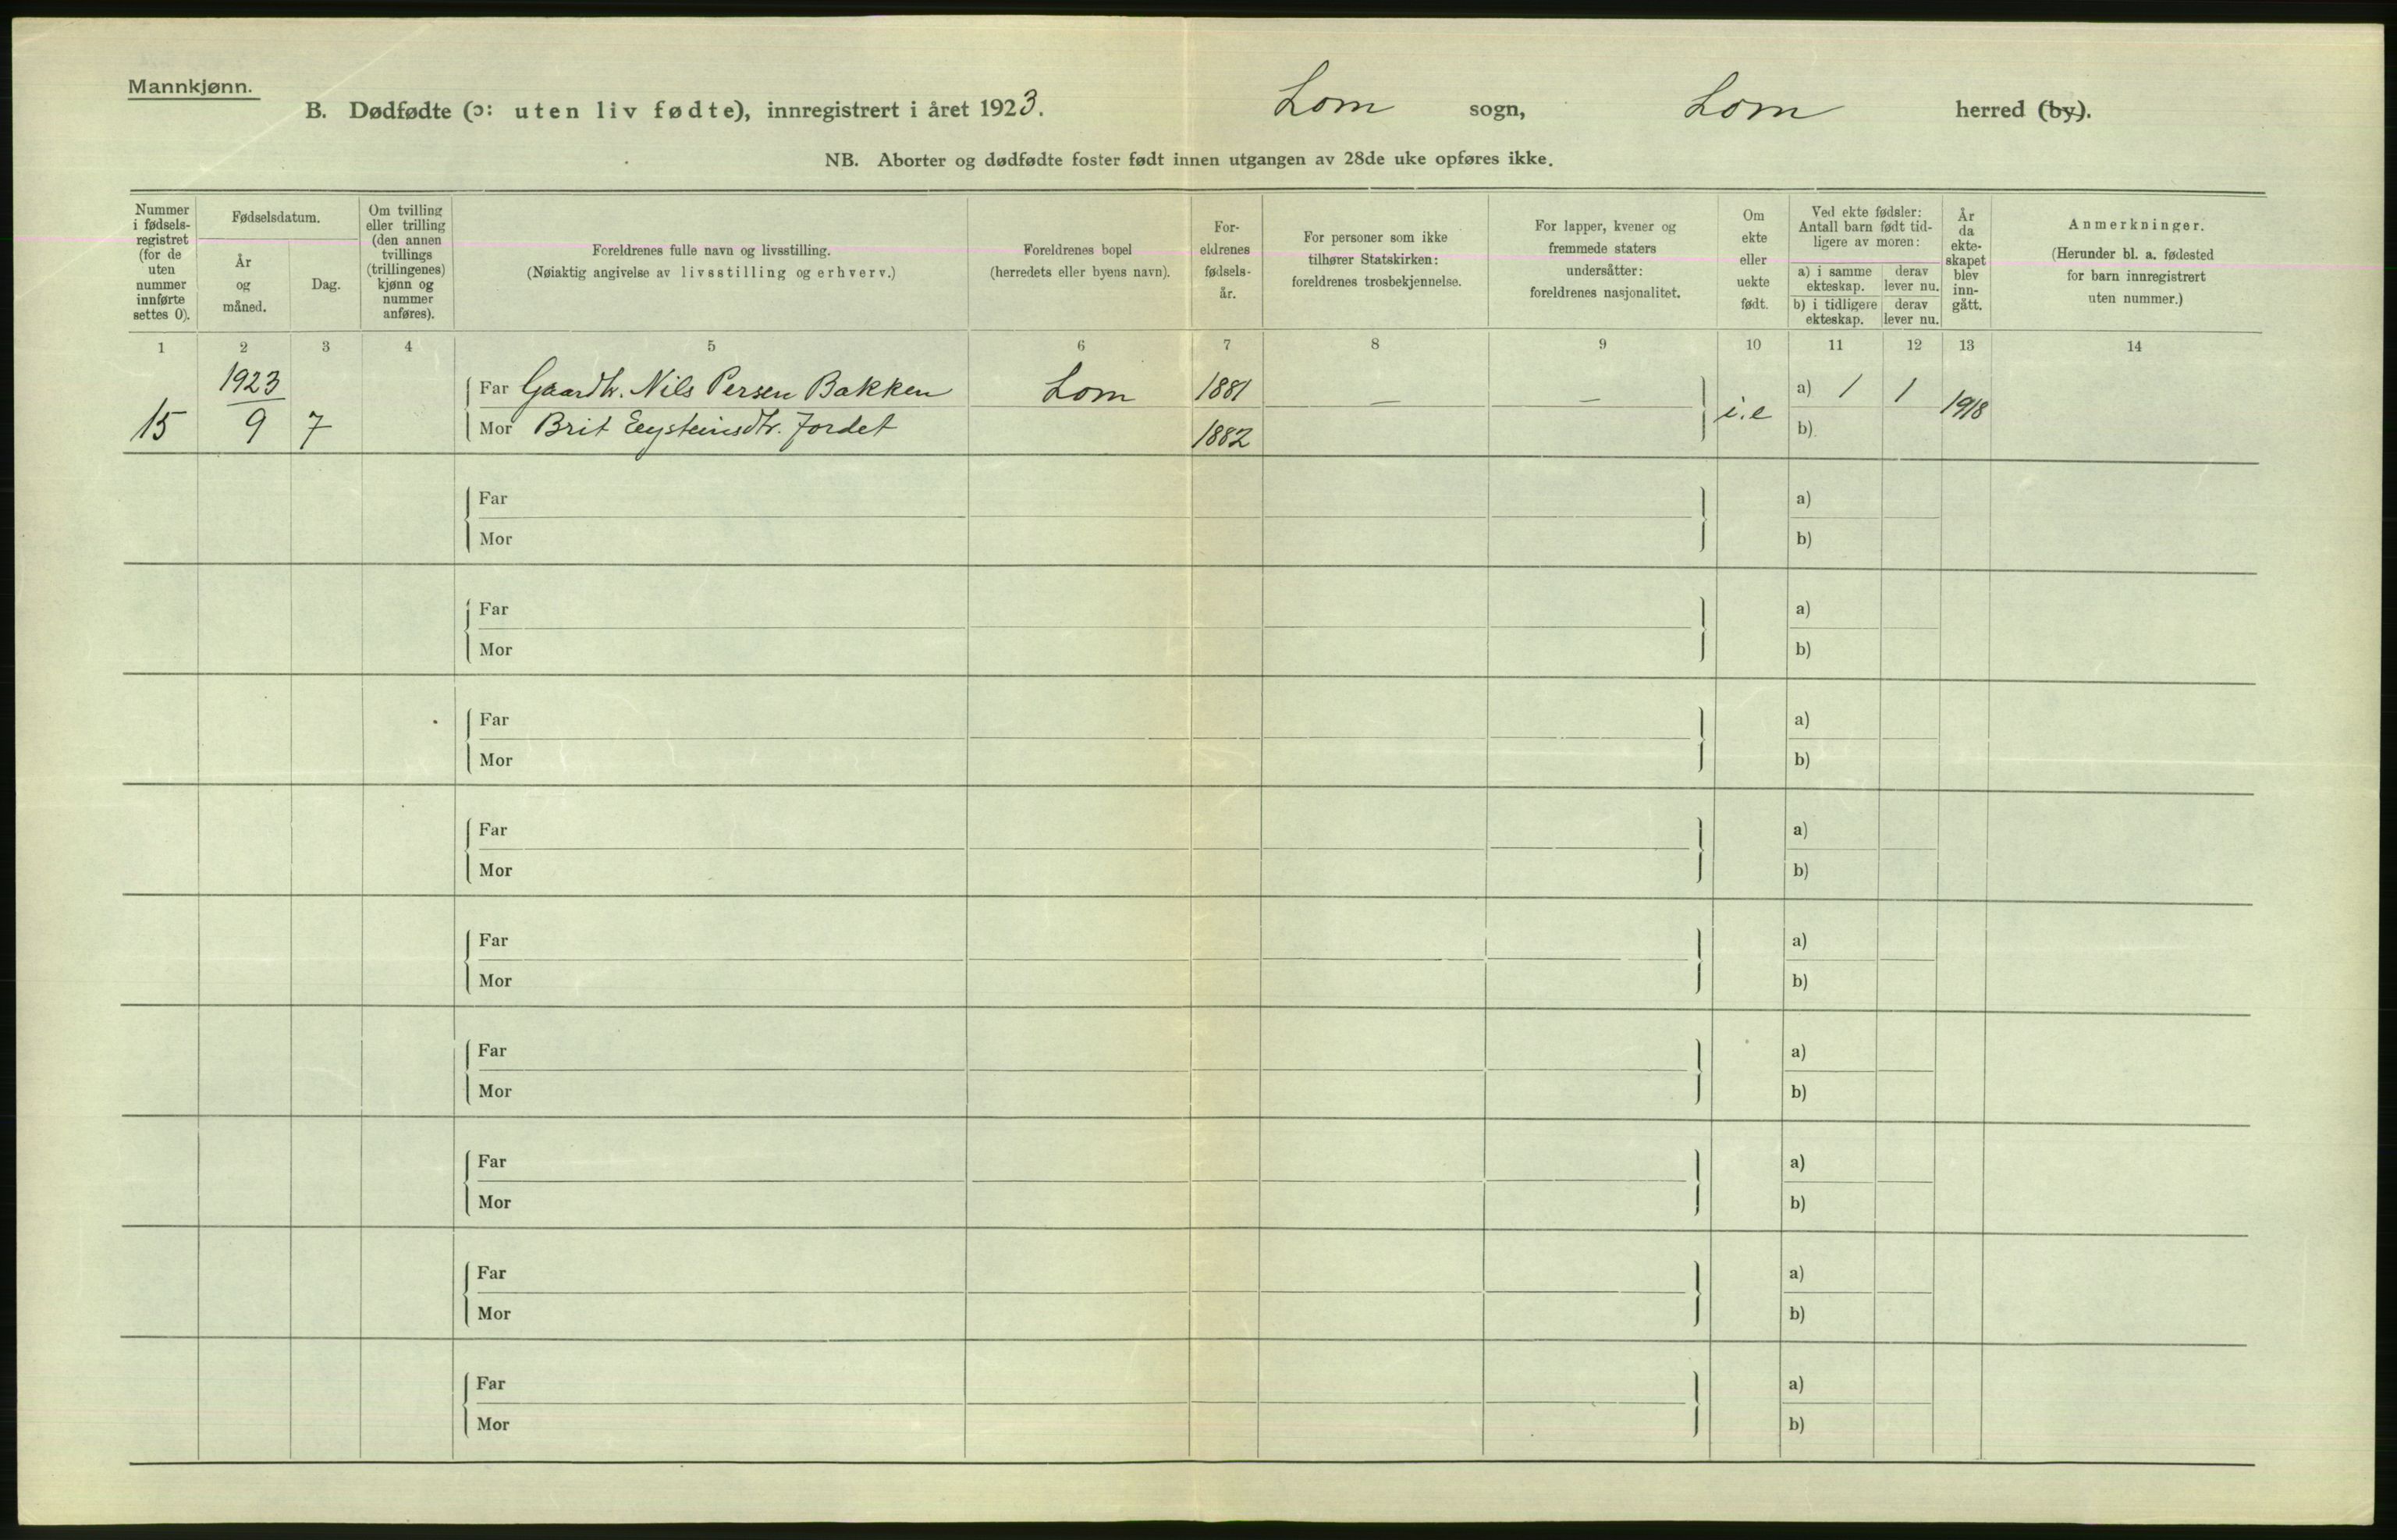 Mannkjønn.
B. Dødfødte (ɔ: uten liv fødte), innregistrert i året 1923. Lom sogn, Lom herred (by).
NB. Aborter og dødfødte foster født innen utgangen av 28de uke opføres ikke.
Nummer
i fødsels-
registret
(for de
uten
nummer
innførte
settes 0).
Fødselsdatum.
År
og
måned.
Dag.
Om tvilling
eller trilling
(den annen
tvillings
(trillingenes)
kjønn og
nummer
anføres).
Foreldrenes fulle navn og livsstilling.
(Nøiaktig angivelse av livsstilling og erhverv.)
Foreldrenes bopel
(herredets eller byens navn).
For-
eldrenes
fødsels-
år.
For personer som ikke
tilhører Statskirken:
foreldrenes trosbekjennelse.
For lapper, kvener og
fremmede staters
undersåtter:
foreldrenes nasjonalitet.
Om
ekte
eller
uekte
født.
Ved ekte fødsler:
Antall barn født tid-
ligere av moren:
a) i samme
ekteskap.
derav
lever nu.
b) i tidligere
ekteskap.
derav
lever nu.
År
da
ekte-
skapet
blev
inn-
gått.
Anmerkninger.
(Herunder bl. a. fødested
for barn innregistrert
uten nummer.)
1 2 3 4 5 6 7 8 9 10 11 12 13 14
1923 Far Gaardbr. Nils Persen Bakken Lom 1881 — — a) 1 1
15 9 7 Mor Brit Eysteinsdtr. Jordet 1882 i.e b) 1918
Far a)
Mor b)
Far a)
Mor b)
Far a)
Mor b)
Far a)
Mor b)
Far a)
Mor b)
Far a)
Mor b)
Far a)
Mor b)
Far a)
Mor b)
Far a)
Mor b)